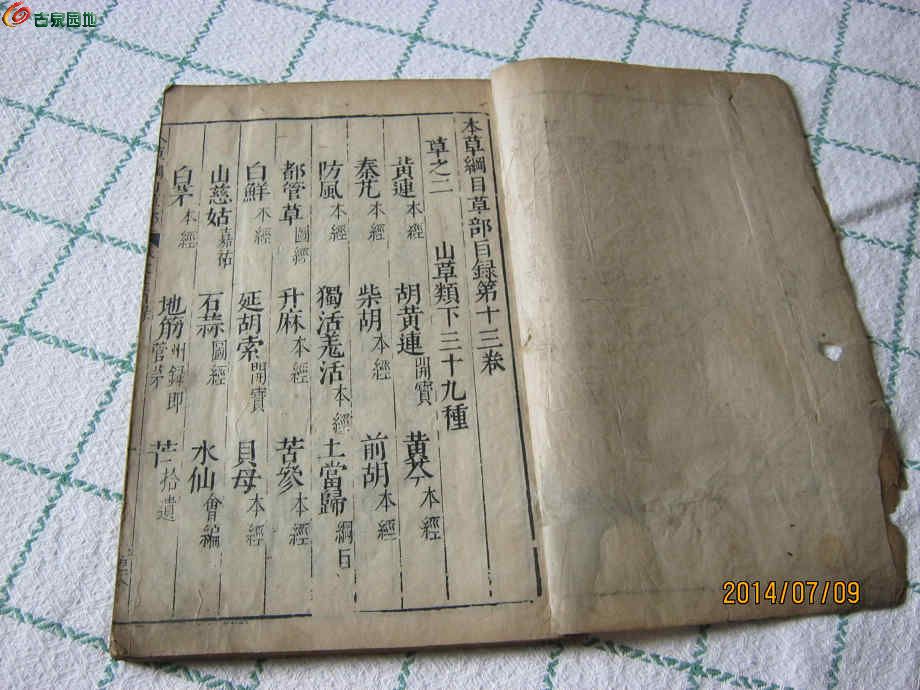 古泉园地
本草綱目草部目録第十三卷
草之二 山草類下三十九種
黃連本經 胡黃連開寶 黃芩本經
秦艽本經 柴胡本經 前胡本經
防風本經 獨活羌活本經 土當歸綱目
都管草圖經 升麻本經 苦參本經
白鮮本經 延胡索開寶 貝母本經
山慈姑嘉祐 石蒜圖經 水仙會編
白茅本經 地筋別録即菅茅 芒拾遺
2014/07/09